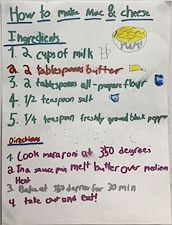 How to make Mac & cheese
Ingredients
yum!
1. 2 cups of milk
2. 2 tablespoons butter
3. 2 tablespoons all-purpose flour
4. 1/2 teaspoon salt
5. 1/4 teaspoon freshly ground black pepper
Directions
1. Cook macaroni at 350 degrees
2. In a saucepan melt butter over medium
Heat
3. Bake at 350 for 30 min
4. take out and eat!